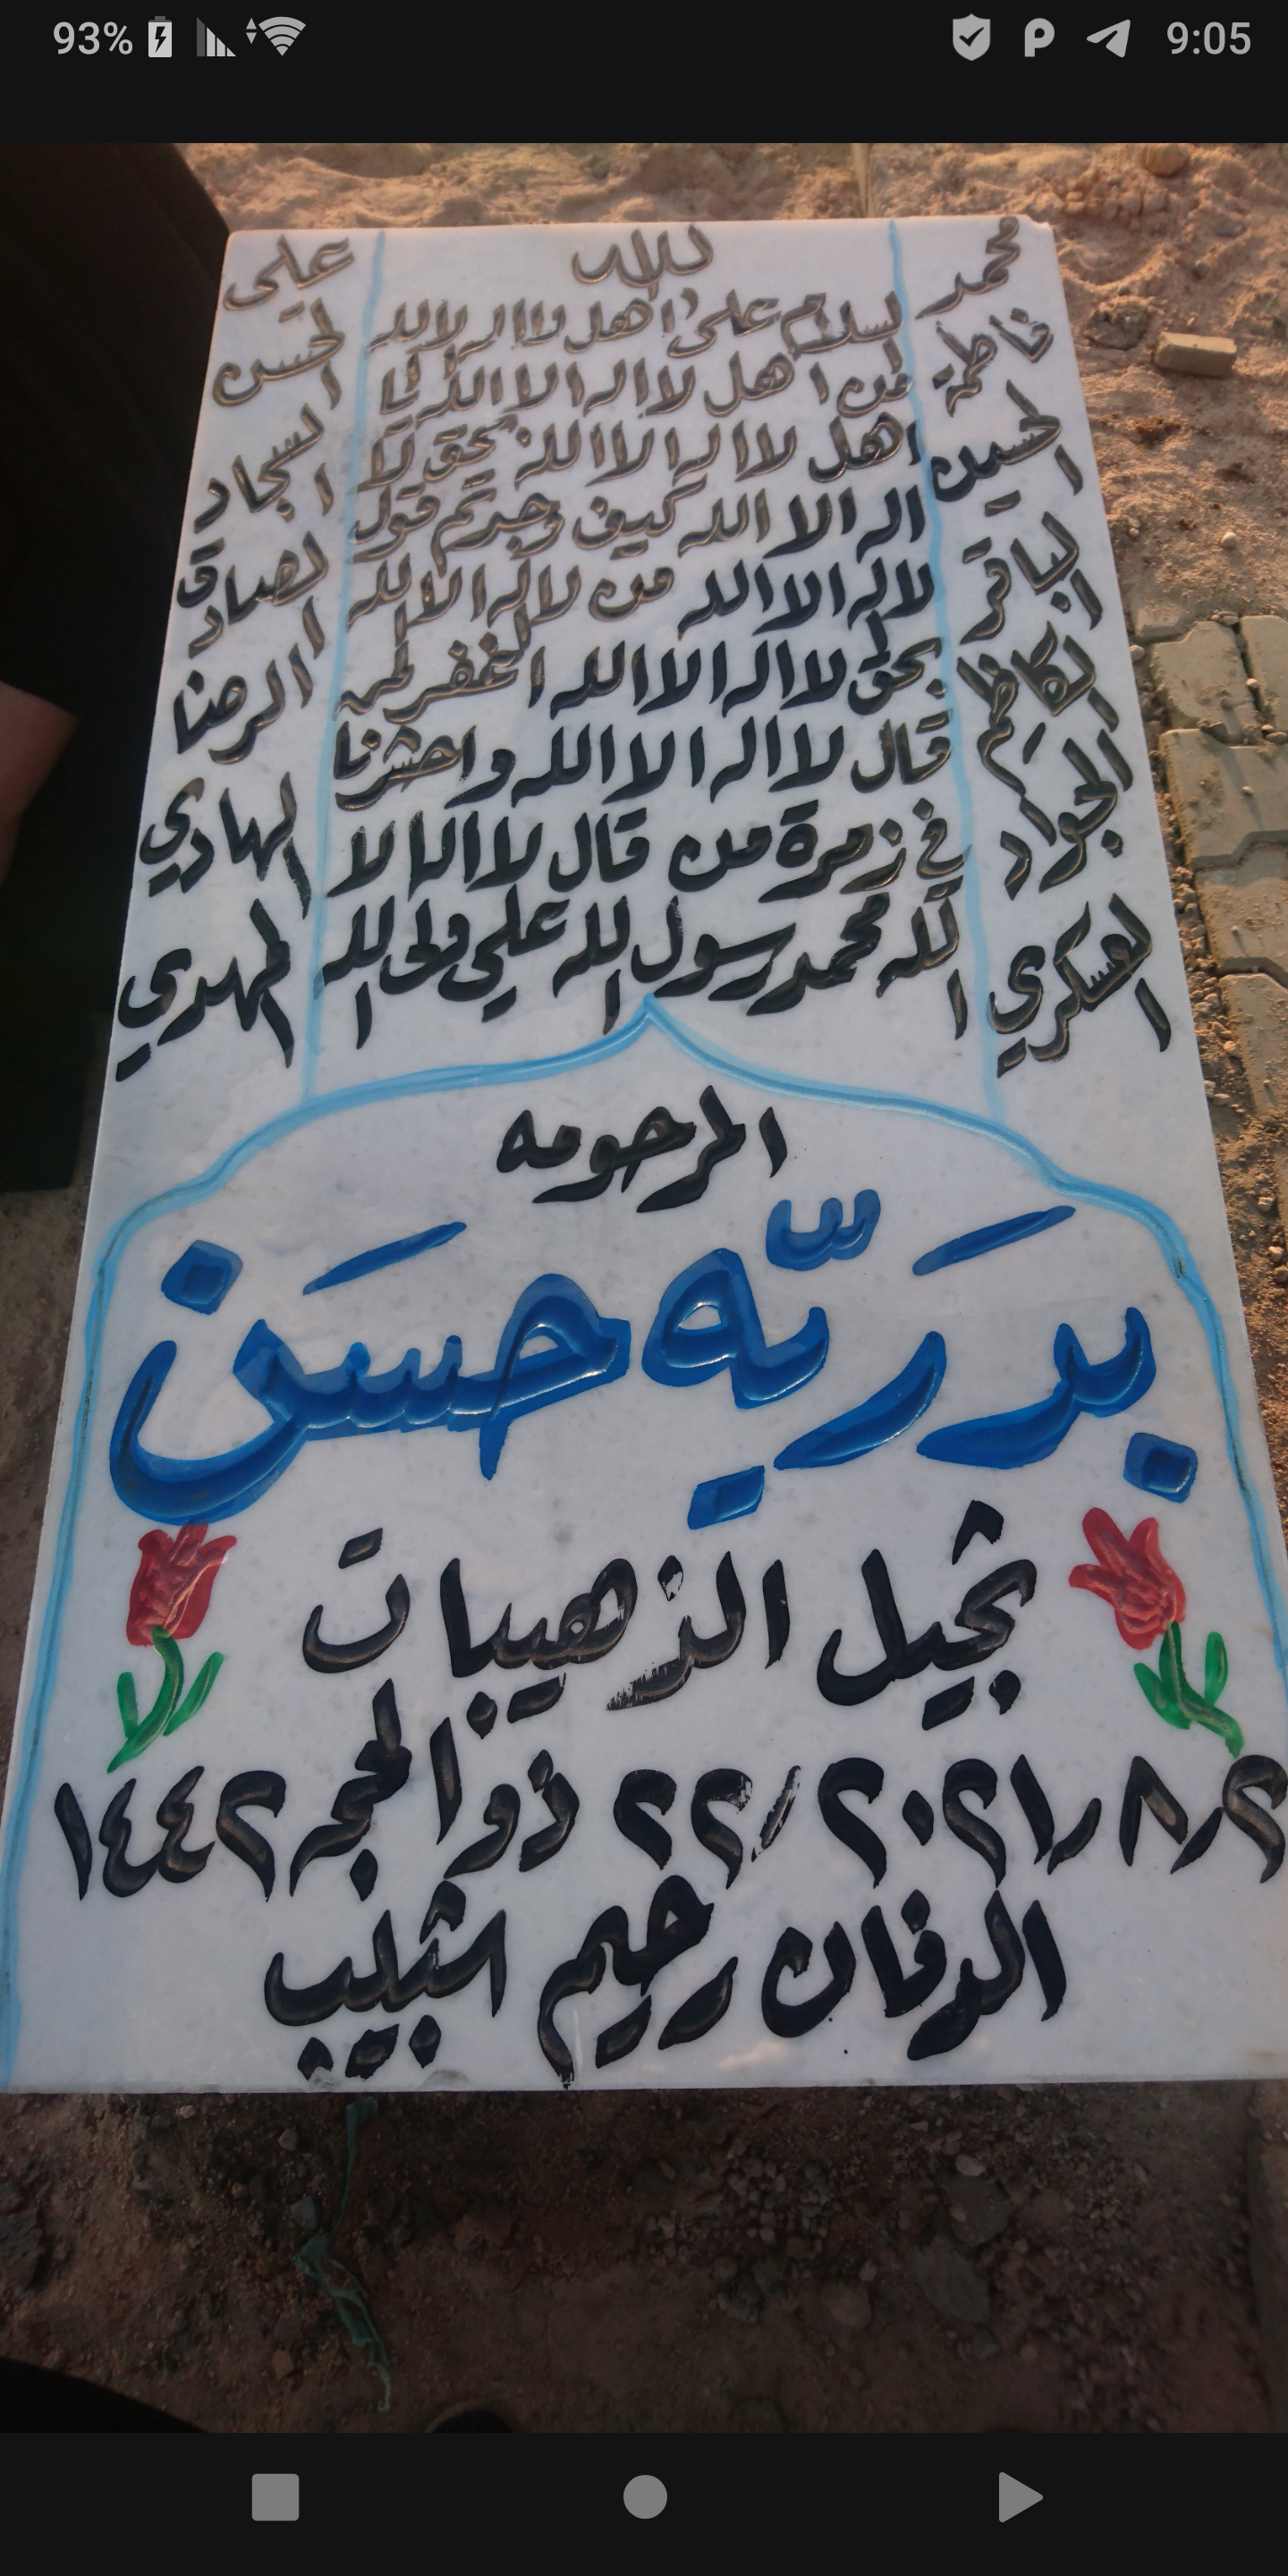 93% 9:05
الله
محمد
فاطمة
الحسين
الباقر
الكاظم
الجواد
العسكري
السلام على اهل لا اله الا الله
من اهل لا اله الا الله يا
اهل لا اله الا الله بحق لا
اله الا الله كيف وجدتم قول
لا اله الا الله من لا اله الا الله
بحق لا اله الا الله اغفر لمن
قال لا اله الا الله واحشرنا
في زمرة من قال لا اله الا
الله محمد رسول الله علي ولي الله
علي
الحسن
السجاد
الصادق
الرضا
الهادي
المهدي
المرحومه
بدَريّه حسَن
ثجيل الذهيبات
٢ / ٨ / ٢٠٢١ / ٢٢ ذوالحجر ١٤٤٢
الدفان رحيم اشبيب